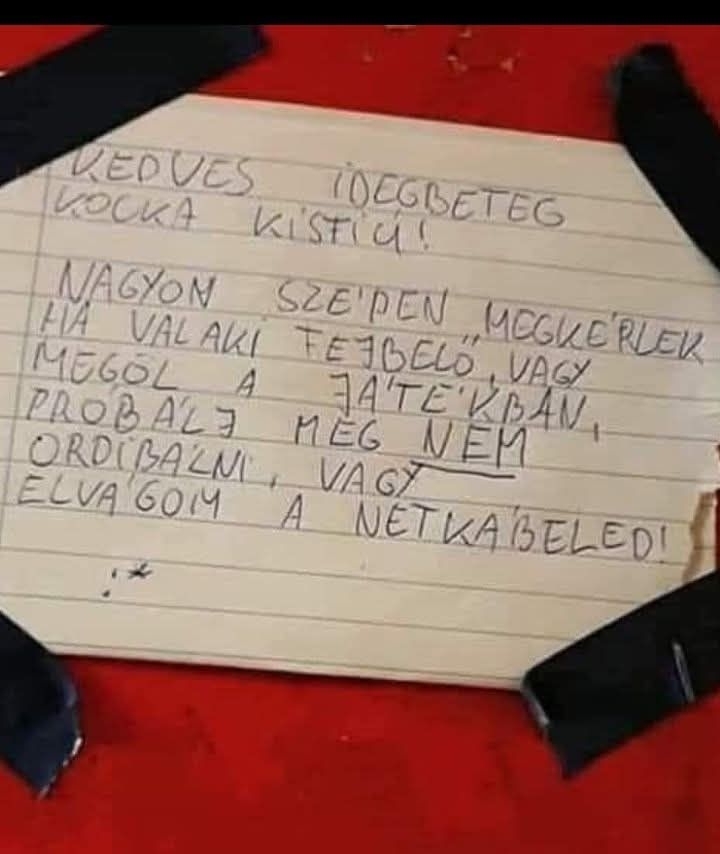 KEDVES IDEGBETEG
KOCKA KISFIÚ!
NAGYON SZÉPEN MEGKÉRLEK
HA VALAKI FEJBELŐ, VAGY
MEGÖL A JÁTÉKBAN,
PRÓBÁLJ MEG NEM
ORDÍBÁLNI, VAGY
ELVÁGOM A NETKÁBELED!
:*